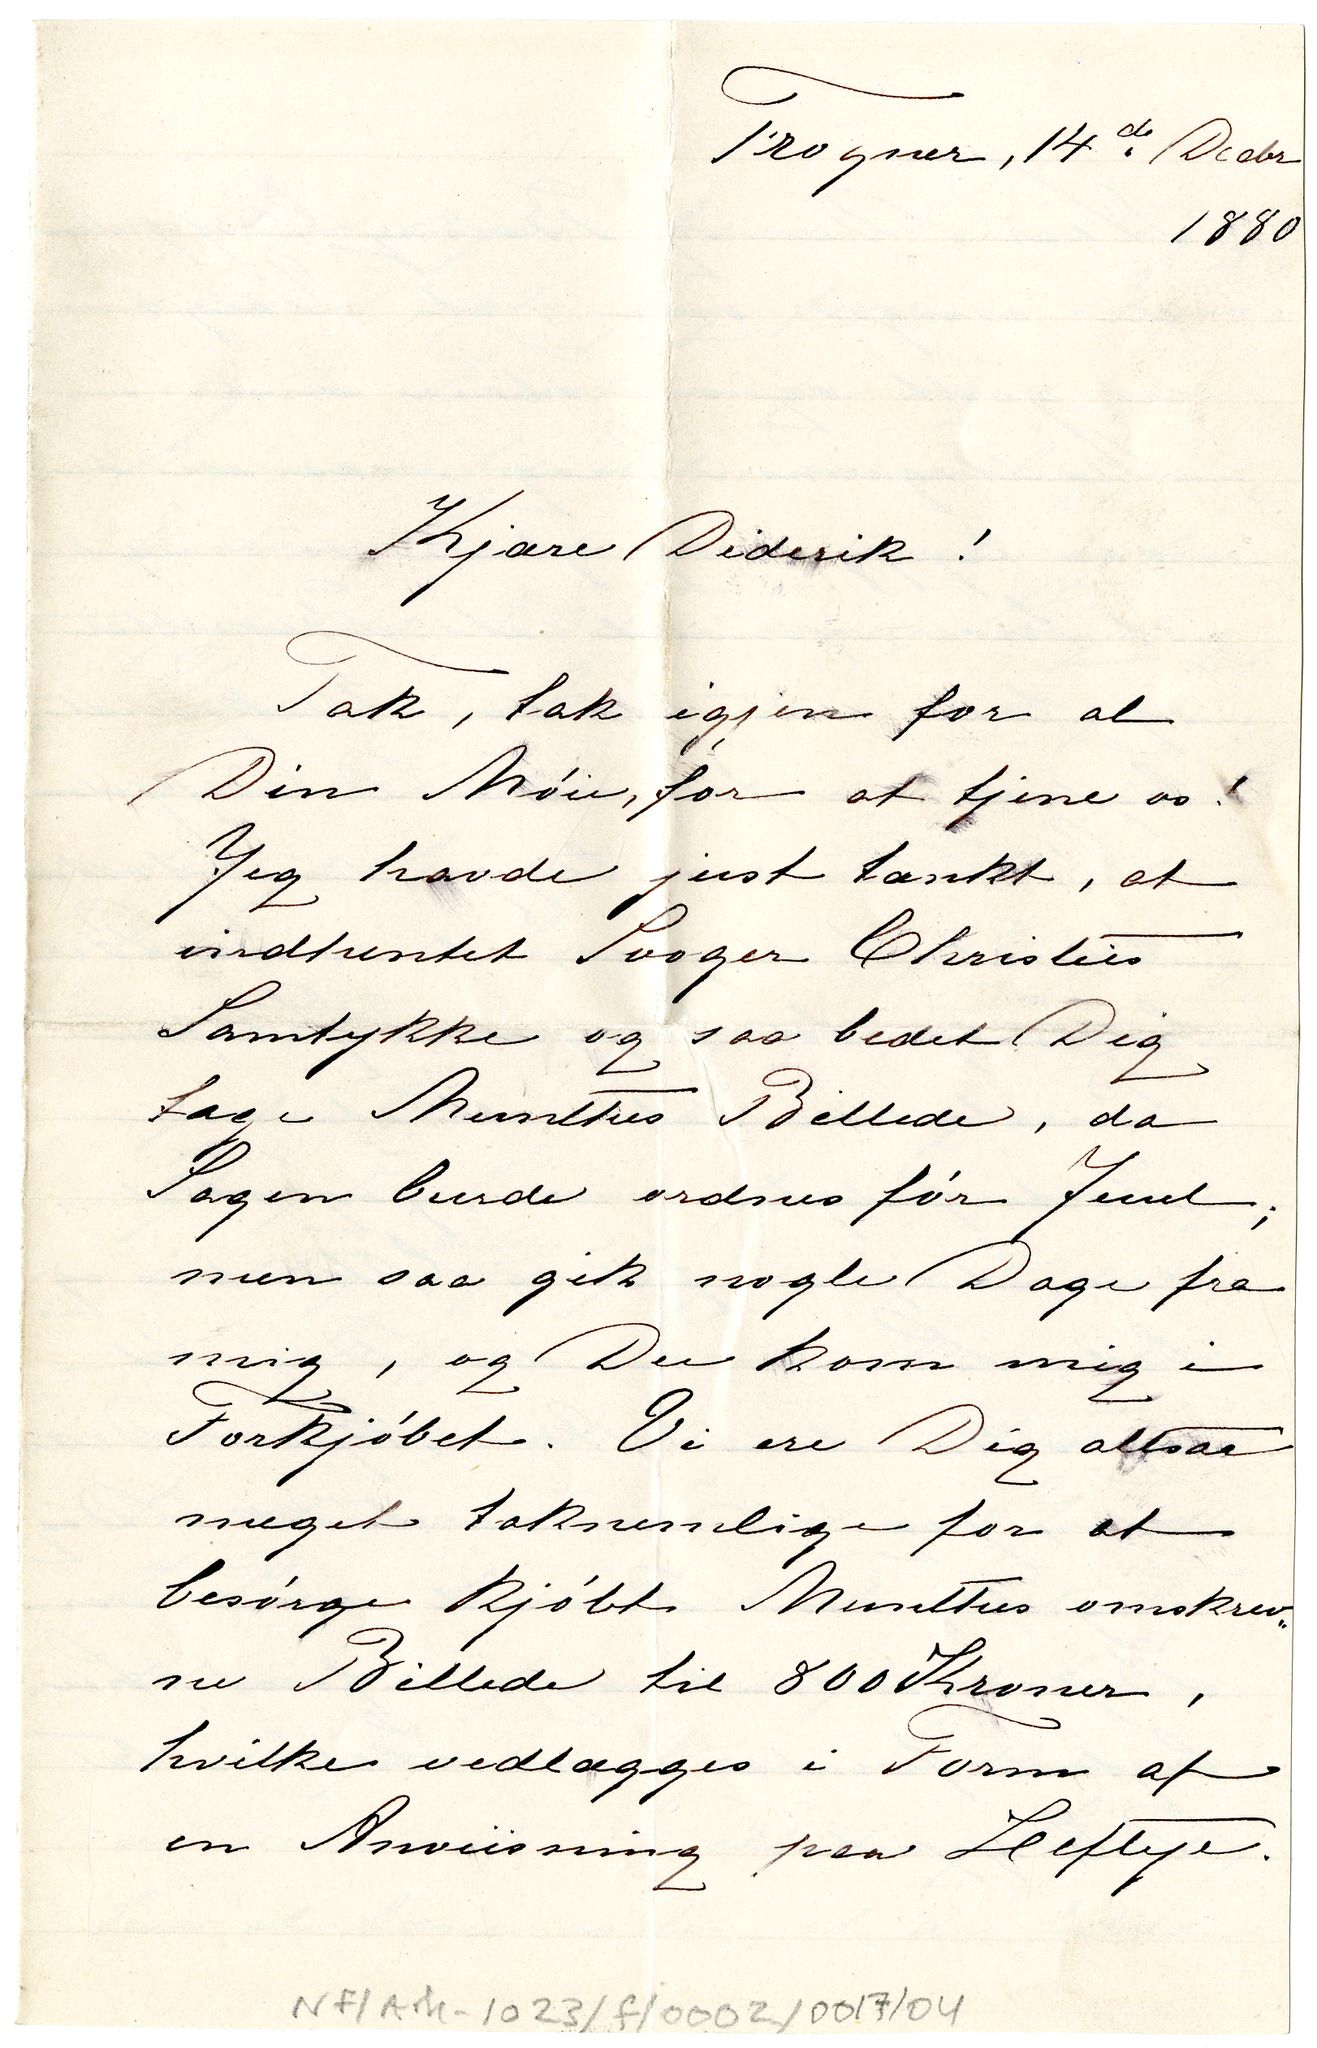 Frogner, 14de Decbr
1880
Kjære Diderik!
Tak, tak igjen for al
Din Móie, for at tjene os!
Jeg havde just tænkt, at
indhentet Svoger Christies
Samtykke og saa bedet Dig
tage Munthes Billede, da
Sagen burde ordnes fór Juul;
men saa gik nogle Dage fra
mig, og Du kom mig i
Forkjóbet. Vi ere Dig altsaa
meget taknemlige for at
besórge kjóbt Munthes omskrev„
ne Billede til 800 Kroner,
hvilke vedlægges i Form af
en Anviisning paa Heftye.
NF/Ark-1023/f/0002/0017/04